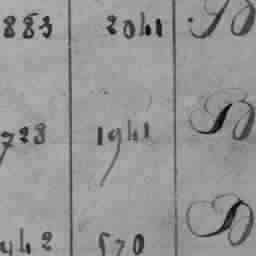 883 2041 B
728 1941 B
942 570 B